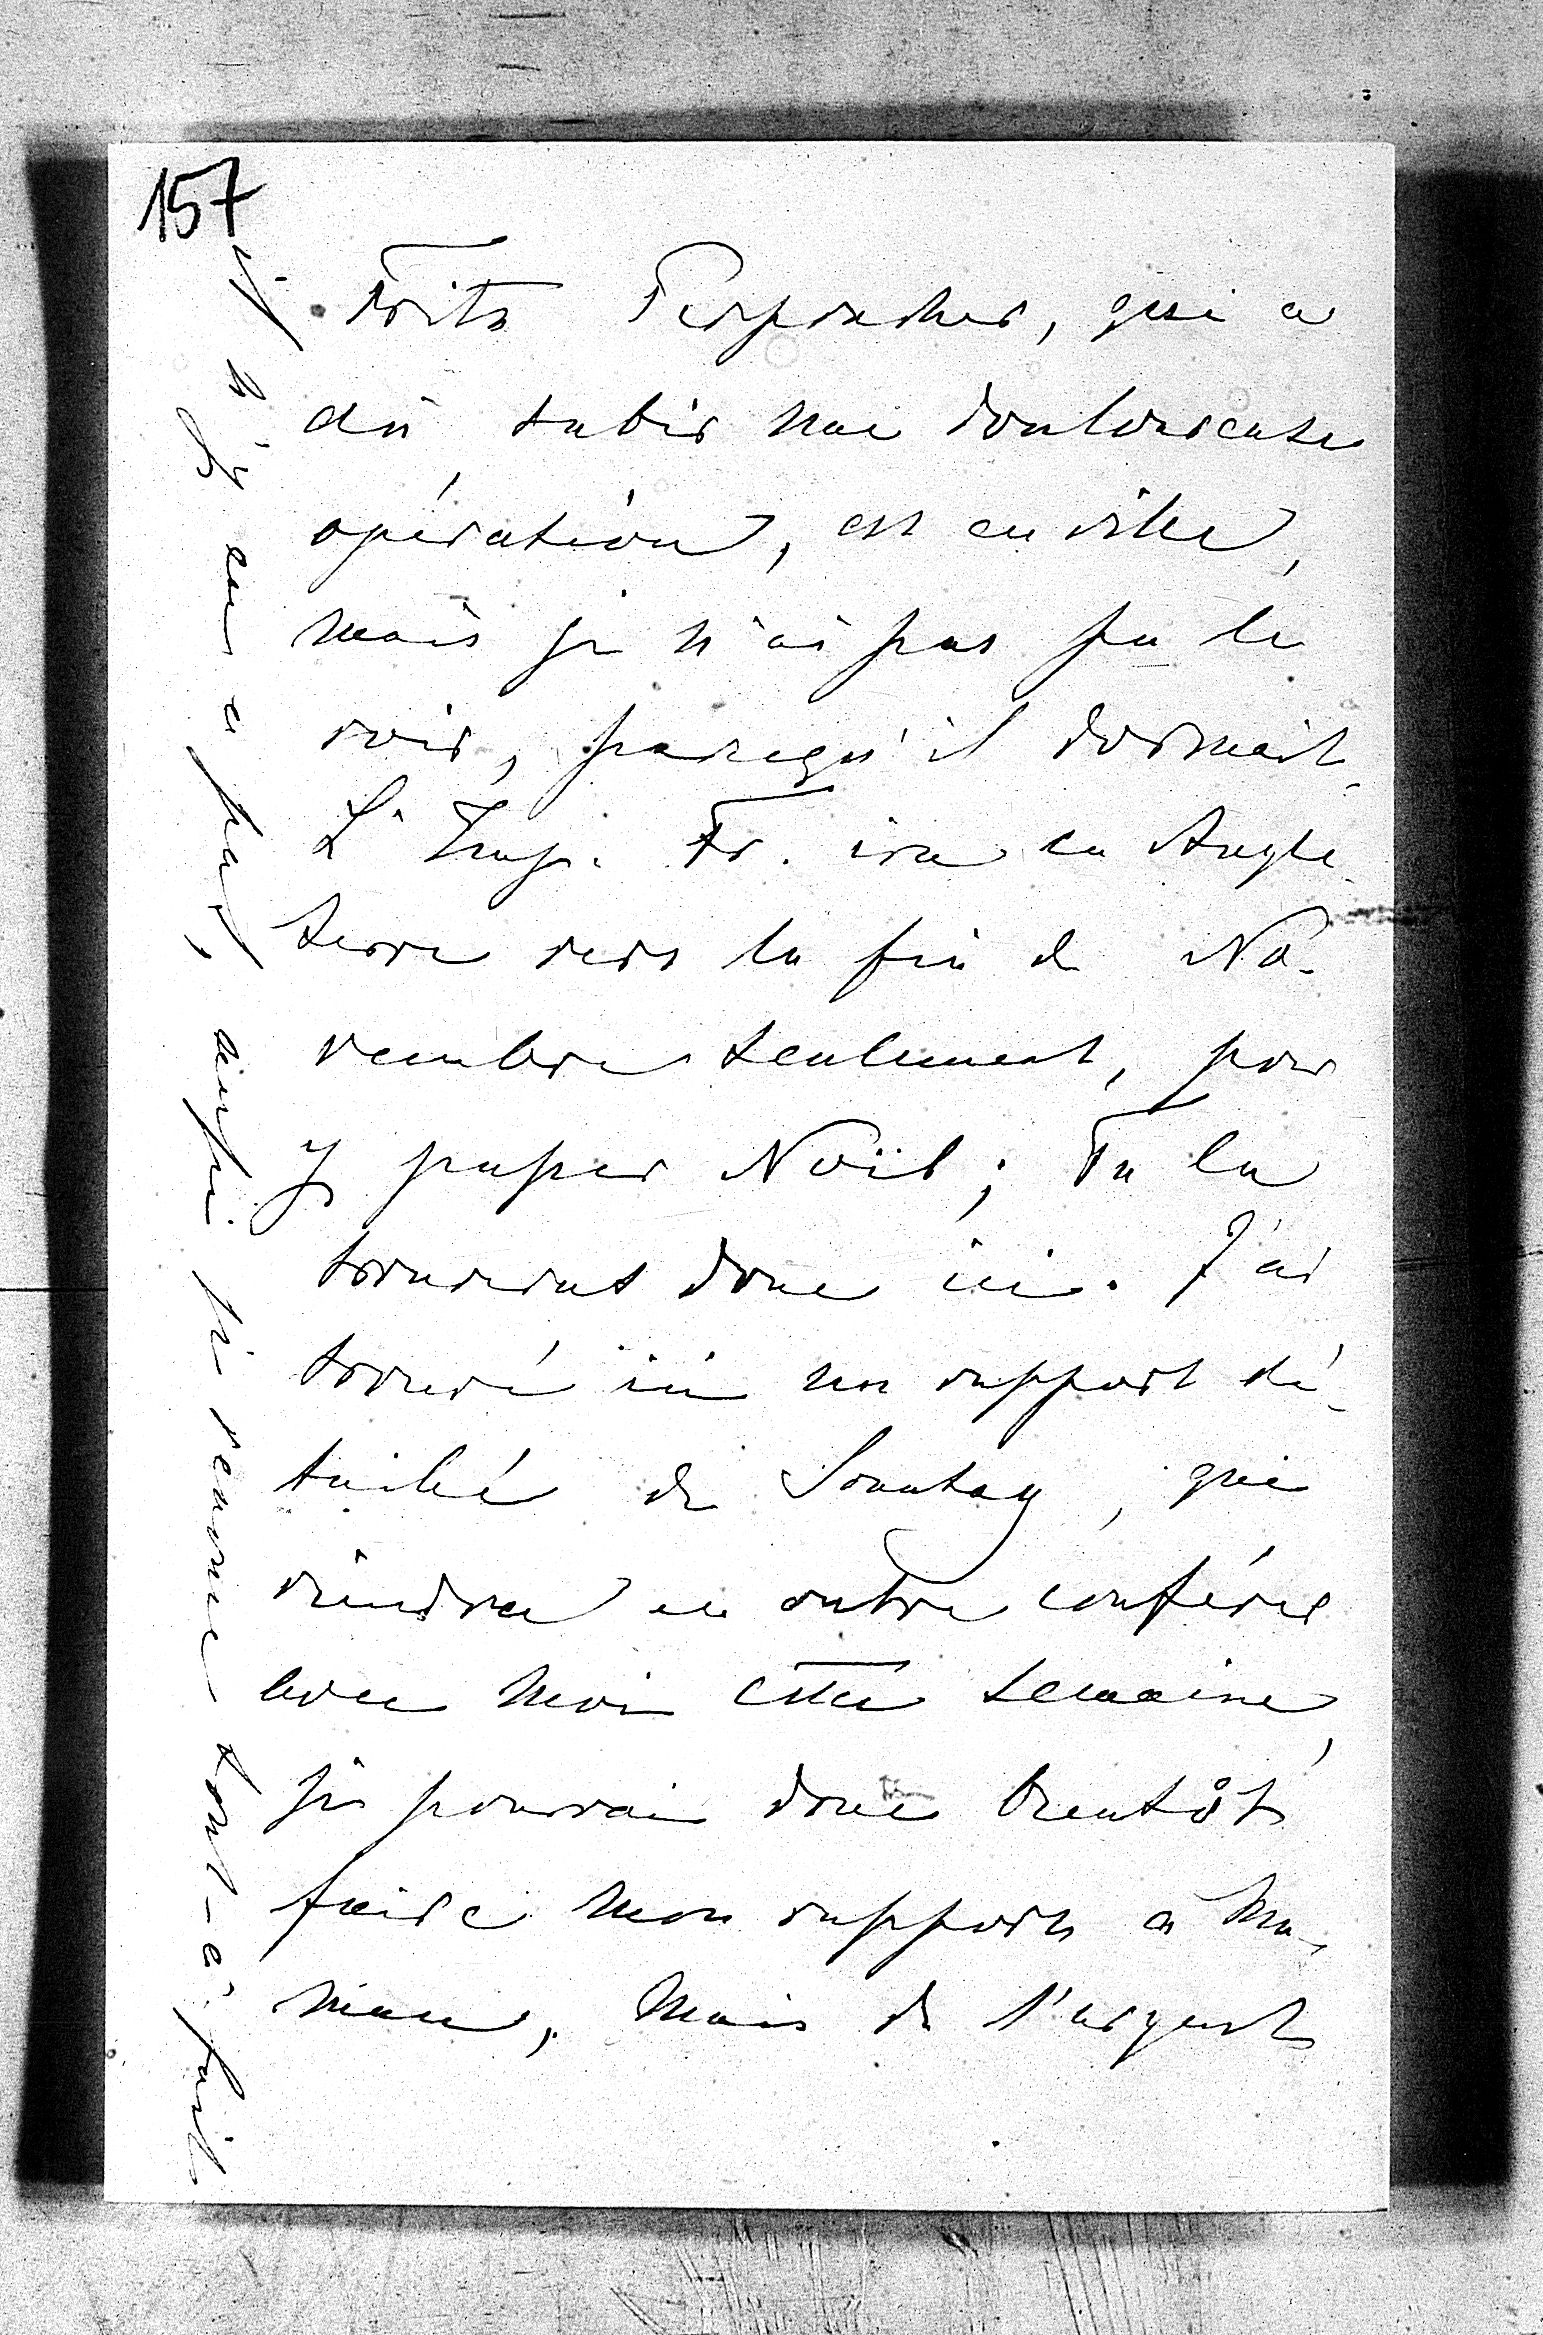 157
Fritz Perponcher, qui a
dû subir une douloureuse
opération, est en ville,
mais je n'ai pas pu le
voir, parcequ'il dormait.
L'Imp. Fr. ira en Angle-
terre vers la fin de No-
vembre seulement, pour
y passer Noël; Tu la
trouveras donc ici. J'ai
trouvé ici un rapport dé-
taillé de Sonntag, qui
viendra en outre conférer
avec moi cette semaine,
je pourrai donc bientôt
faire mon rapport à Ma-
man, mais de l'argent
il n'y en a pas, ainsi je renonce tout-à-fait